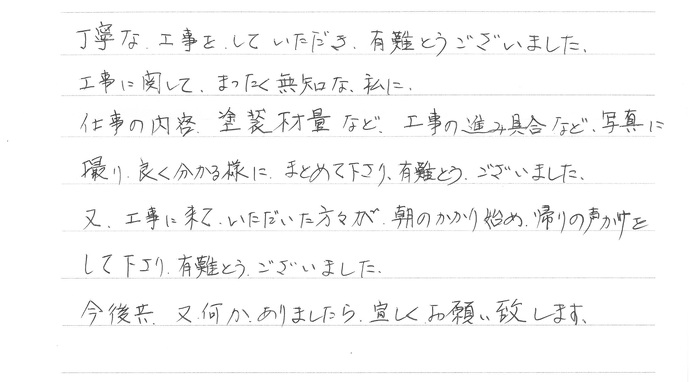 丁寧な、工事を、して いただき、有難とうございました。
工事に関して、まったく無知な、私に、
仕事の内容、塗装材量など、工事の進み具合など、写真に
撮り、良く分かる様に、まとめて下さり、有難とう、ございました。
又、工事に来て、いただいた方々が、朝のかかり始め、帰りの声かけを
して下さり、有難とう、ございました。
今後共、又、何か、ありましたら、宜しくお願い致します、